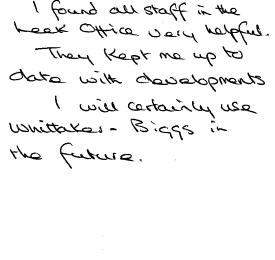 I found all staff in the
Leek Office very helpful.
They kept me up to
date with developments
I will certainly use
Whittaker - Biggs in
the future.